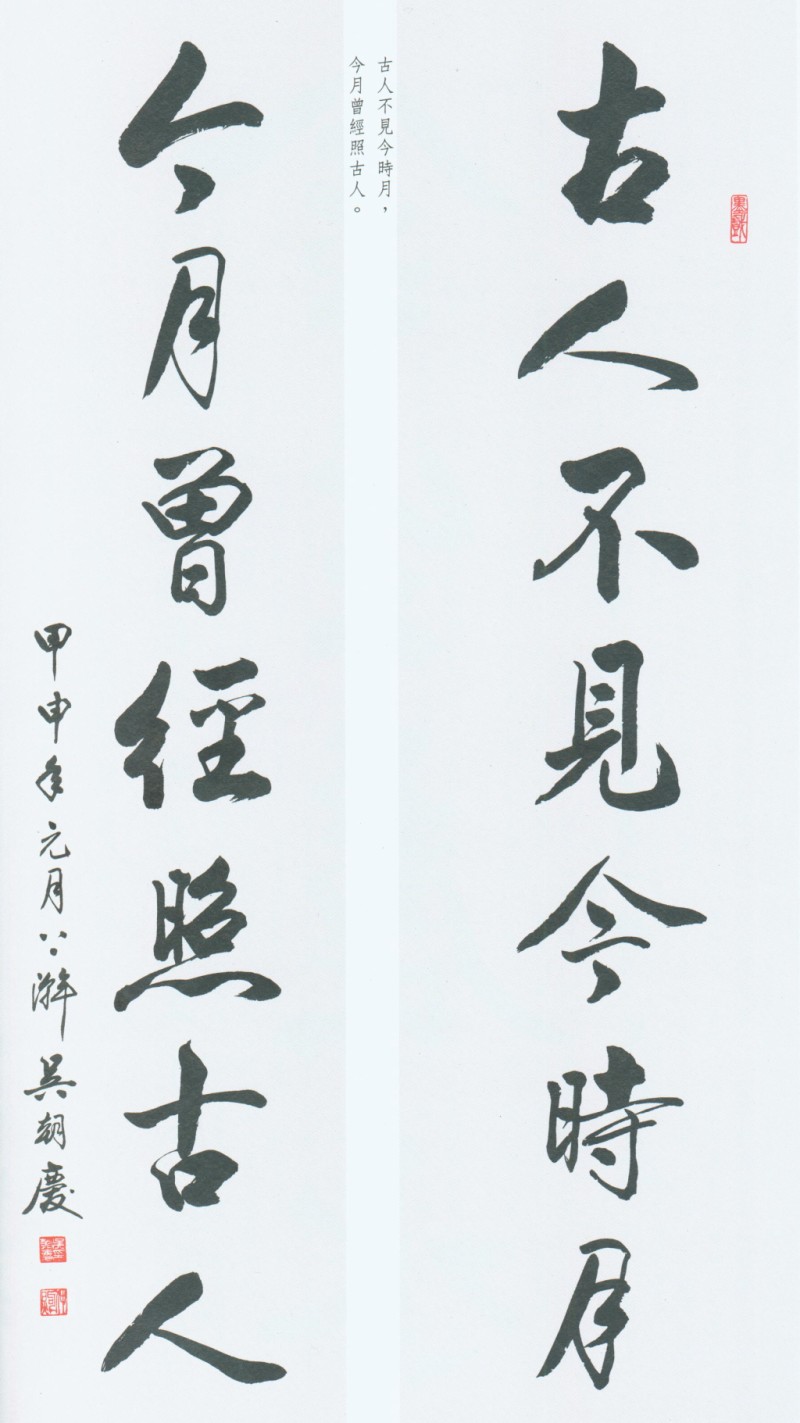 古人不見今時月
古人不見今時月，
今月曾經照古人。
今月曾經照古人
甲申年元月 吳朝慶